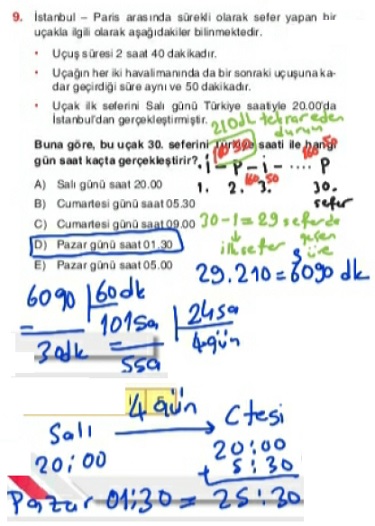 9. İstanbul – Paris arasında sürekli olarak sefer yapan bir
uçakla ilgili olarak aşağıdakiler bilinmektedir.
• Uçuş süresi 2 saat 40 dakikadır.
• Uçağın her iki havalimanında da bir sonraki uçuşuna ka-
dar geçirdiği süre aynı ve 50 dakikadır.
• Uçak ilk seferini Salı günü Türkiye saatiyle 20.00'da
İstanbul'dan gerçekleştirmiştir.
210dk tekrar eden
durum
Buna göre, bu uçak 30. seferini Türkiye saati ile hangi
gün saat kaçta gerçekleştirir?
i - p - i - .... p
160 50
1. 2. 3. 30.
sefer
A) Salı günü saat 20.00
B) Cumartesi günü saat 05.30
C) Cumartesi günü saat 09.00
D) Pazar günü saat 01.30
E) Pazar günü saat 05.00
30-1=29 seferde
ilk sefer
geçen
süre
29.210=6090 dk
6090 60dk
101sa 24sa
30dk 4gün
5sa
4 gün
Salı Ctesi
20:00 20:00
+ 5:30
Pazar 01:30 = 25:30